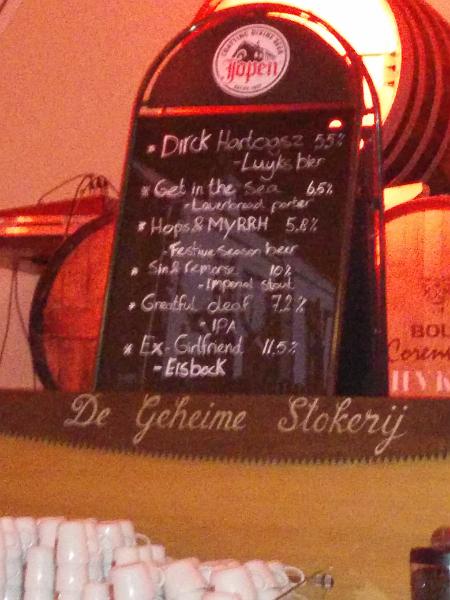 CRAFTING DIVINE BEER
Jopen
* Dirck Hartogsz 5.5%
- Luyks bier
* Get in the Sea 6.5%
- Laverbread porter
* Hops & MYRRH 5.8%
- Festive season beer
* Sin & remorse 10%
- Imperial stout
* Greatful deaf 7.2%
- IPA
* Ex-Girlfriend 11.5%
- Eisbock
De Geheime Stokerij
BOL